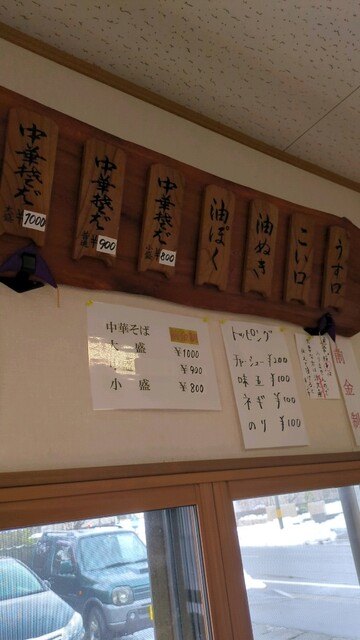 中華そば
大盛 ¥1000
中華そば
普通 ¥900
中華そば
小盛 ¥800
油ぽく
油ぬき
こい口
うす口
中華そば
大盛 ¥1000
¥900
小盛 ¥800
トッピング
チャーシュー ¥200
味玉 ¥100
ネギ ¥100
のり ¥100